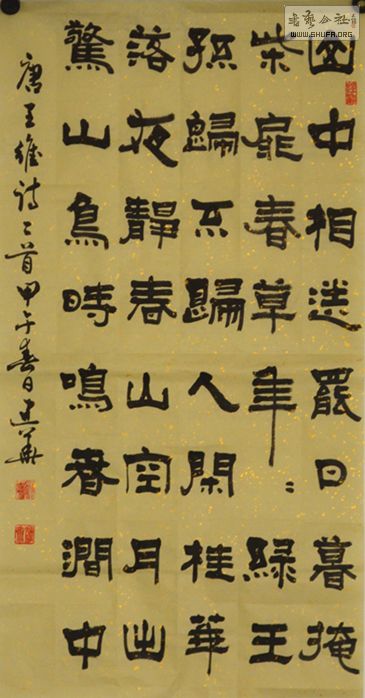 山中相送罷日暮掩
柴扉春草年〻綠王
孫歸不歸人閑桂華
落夜靜春山空月出
驚山鳥時鳴春澗中
唐王維詩二首甲午春日建華
书艺公社
WWW.SHUFA.ORG